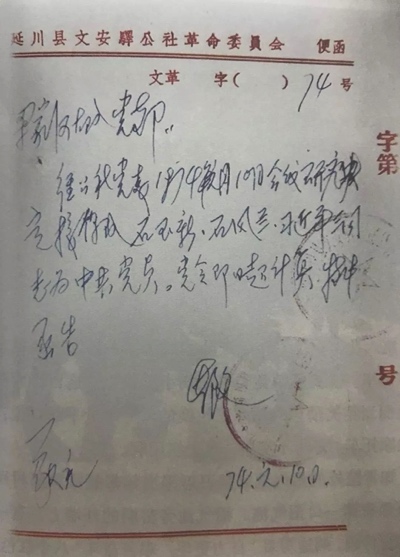 延川县文安驿公社革命委員会 便函
文革 字( ) 74 号
梁家河大队党支部:
经公社党委1974年元月10日会议研究决
定接收 石玉新、石凤兰、习近平同
志为中共党员。党令即日起计算,特此
函告
此
敬礼
74.元.10日.
字第
号